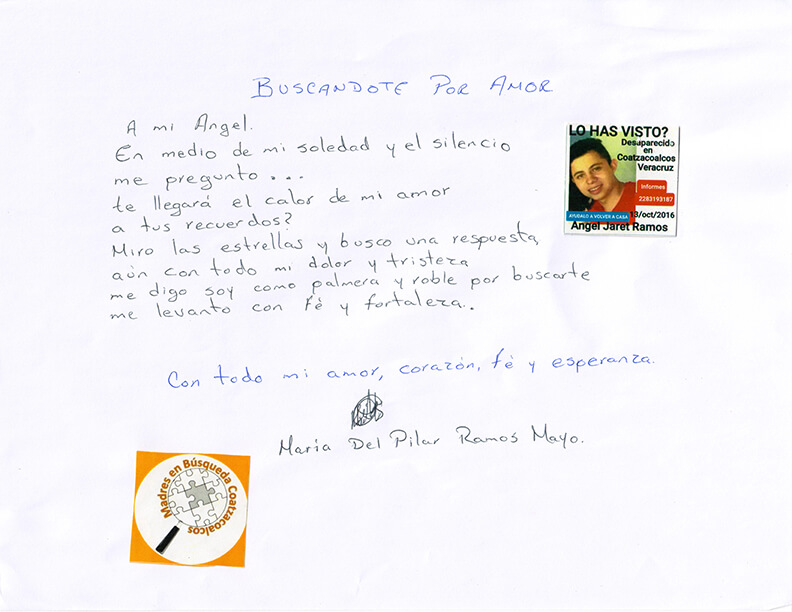 BUSCANDOTE POR AMOR
A mi Angel.
En medio de mi soledad y el silencio
me pregunto...
te llegará el calor de mi amor
a tus recuerdos?
Miro las estrellas y busco una respuesta,
aún con todo mi dolor y tristeza
me digo soy como palmera y roble por buscarte
me levanto con fé y fortaleza..
LO HAS VISTO?
Desaparecido
en
Coatzacoalcos
Veracruz
Informes
2283193187
AYUDALO A VOLVER A CASA
13/oct/2016
Angel Jaret Ramos
Con todo mi amor, corazón, fé y esperanza.
María Del Pilar Ramos Mayo.
Madres en Búsqueda Coatzacoalcos